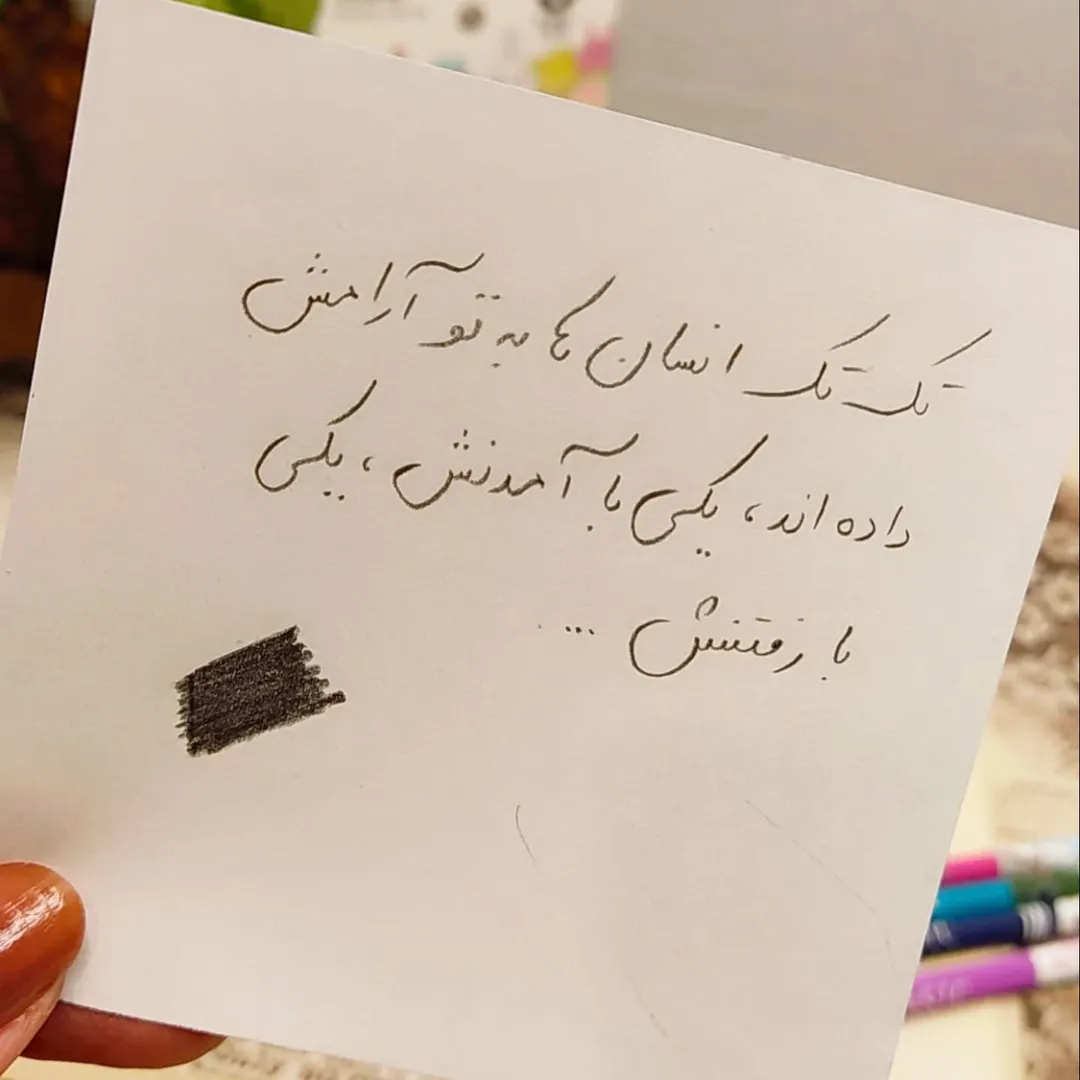 تک تک انسان ها به تو آرامش
داده اند، یکی با آمدنش، یکی
با رفتنش ...